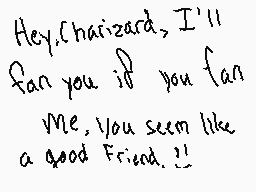 Hey, Charizard, I'll
fan you if you fan
me, you seem like
a good Friend.!!